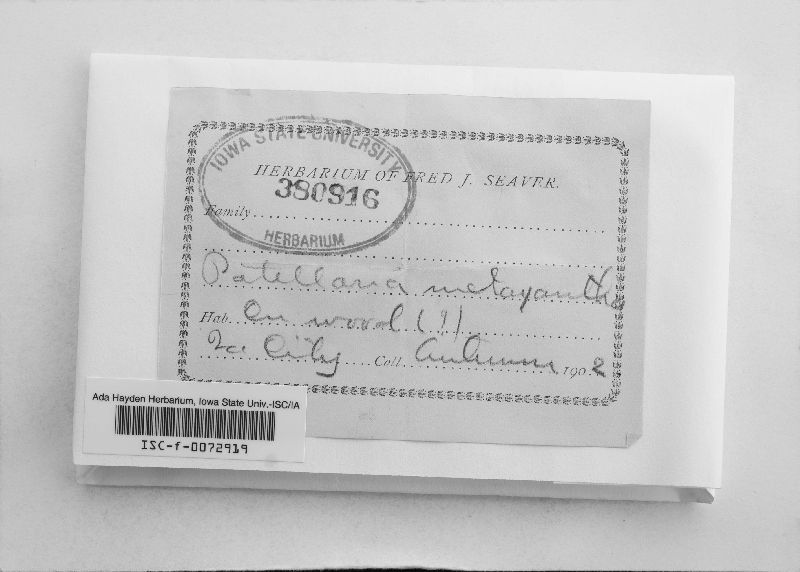 IOWA STATE UNIVERSITY
HERBARIUM OF FRED J. SEAVER.
380916
Family
HERBARIUM
Patellaria metaxantha
Hab. On wood (?)
Ia City Coll. Autumn 1902
Ada Hayden Herbarium, Iowa State Univ.-ISC/IA
ISC-f-0072919